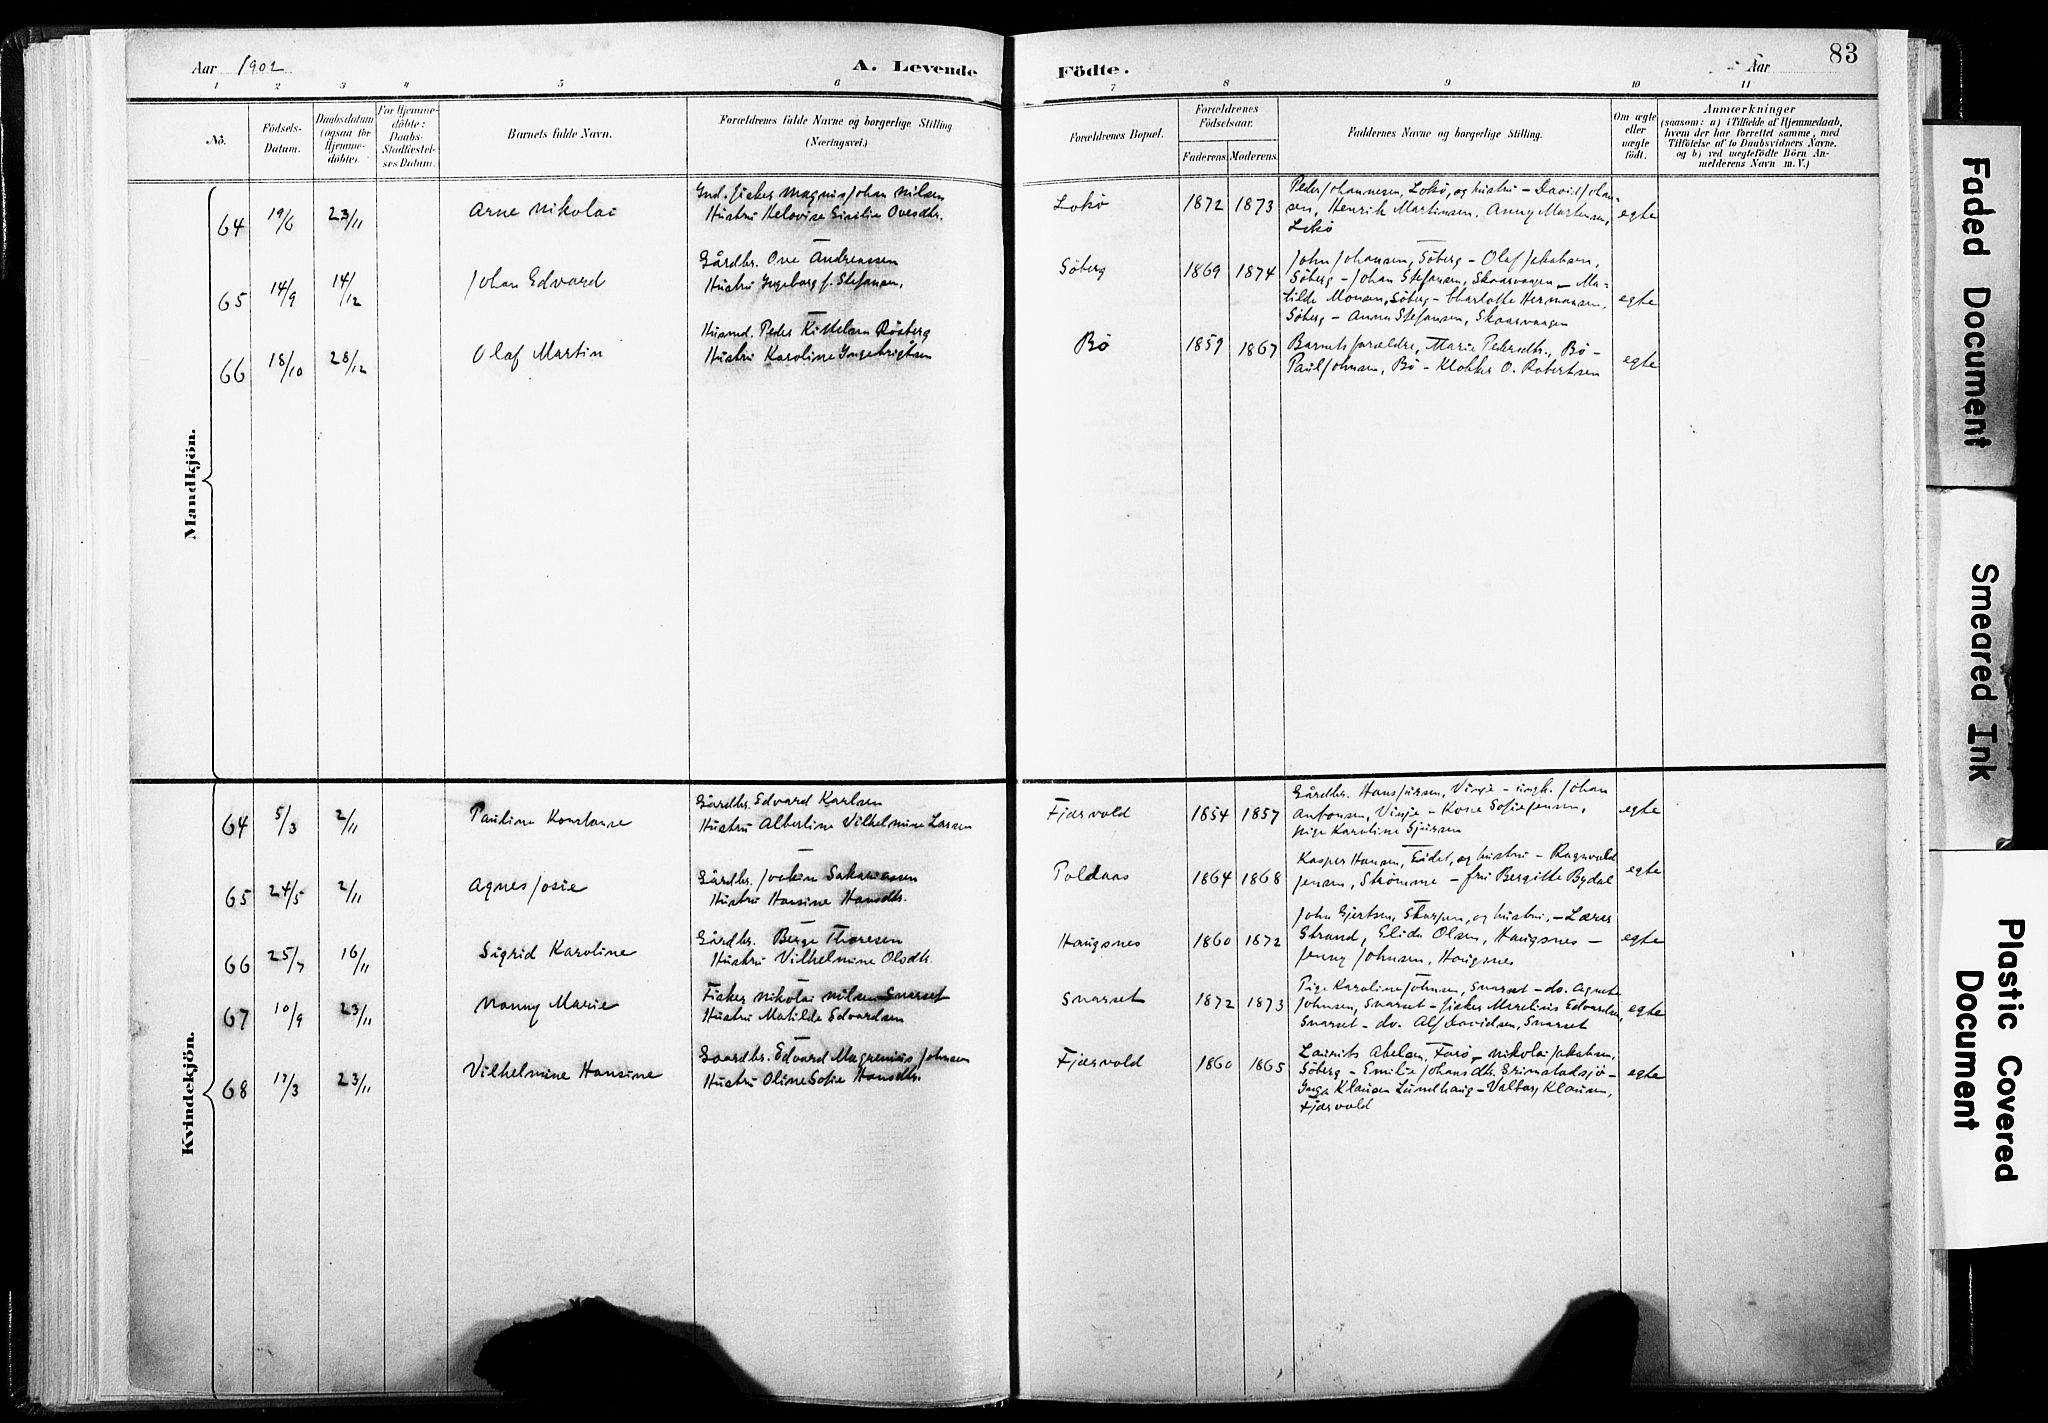 Aar 1902
A. Levende
Födte.
Aar
83
1 2 3 4 5 6 7 8 9 10 11
Nö.
Födsels-
Datum.
Daabsdatum
(ogsaa for
Hjemme-
döbte).
For Hjemme-
döbte:
Daabs-
Stadfæstel-
ses Datum.
Barnets fulde Navn.
Forældrenes fulde Navne og borgerlige Stilling
(Næringsvei.)
Forældrenes Bopæl.
Forældrenes
Födselsaar.
Faderens. Moderens.
Faddernes Navne og borgerlige Stilling.
Om ægte
eller
uægte
født.
Anmærkninger
(saasom: a) i Tilfælde af Hjemmedaab,
hvem der har forrettet samme, med
Tilföielse af to Daabsvidners Navne,
og b) ved uægtefödte Börn An-
melderens Navn m. V.)
Mandkjön.
64 19/6 23/11 Arne Nikolai
Ind. fisker Magnus Johan Nilsen
Hustru Helovise Cicilie Ovesdtr.
Lokö 1872 1873
Peder Johannesen, Lokö, og hustru – David Johan-
sen, Henrik Martinsen, Anny Martensen,
Lokö
egte
65 14/9 14/12 Johan Edvard
Gårdbr. Ove Andreassen
Hustru Ingeborg f. Stefansen,
Söberg 1869 1874
John Johansen, Söberg – Olaf Jakobsen,
Söberg – Johan Stefansen, Skaarvaagen – Ma-
tilde Monsen, Söberg – Charlotte Hermansen,
Söberg – Anna Stefansen, Skaarvaagen
egte
66 18/10 28/12 Olaf Martin
Husmd. Peder Kittelsen Röberg
Hustru Karoline Ingebrigtsen
Bö 1859 1867
Barnets forældre, Marie Pedersdtr., Bö –
Paul Johnsen, Bö – Klokker O. Robertsen
egte
Kvindekjön.
64 5/3 2/11 Pauline Konstanse
Gårdbr. Edvard Karlsen
Hustru Albertine Vilhelmine Larsen
Fjærvold 1854 1857
Gårdbr. Hans Jörsen, Vinje – ungk. Johan
Antonsen, Vinje – Kone Sofie Jensen,
pige Karoline Gjørsen
egte
65 24/5 2/11 Agnes Josie
Gårdbr. Jockim Sakariassen
Hustru Hansine Hansdtr.
Poldaas 1864 1868
Kasper Hansen, Eidet, og hustru – Ragnvald
Jensen, Strömme – fru Bergitte Bydal
egte
66 25/7 16/11 Sigrid Karoline
Gårdbr. Berge Thoresen
Hustru Vilhelmine Olsdtr.
Haugsnes 1860 1872
John Gjertsen, Skarpen, og hustru, – Lærer
Strand, Elida Olsen, Haugsnes –
Jenny Johnsen, Haugsnes
egte
67 10/9 23/11 Nanny Marie
Fisker Nikolai Nilsen Snarset
Hustru Matilde Edvardsen
Snarset 1872 1873
Pige Karoline Johnsen, Snarset – do. Agnete
Johnsen, Snarset – fisker Merelius Edvardsen,
Snarset – do. Alf Davidsen, Snarset
egte
68 17/3 23/11 Vilhelmine Hansine
Gaardbr. Edvard Magrenius Johnsen
Hustru Oline Sofie Hansdtr.
Fjærvold 1860 1865
Laurits Abelsen, Forö – Nikolai Jakobsen,
Söberg – Emilie Johansdtr. Grimstadsjö –
Inga Klausen Lundhaug – Valborg Klausen,
Fjærvold
egte
Faded Document
Smeared Ink
Plastic Covered
Document